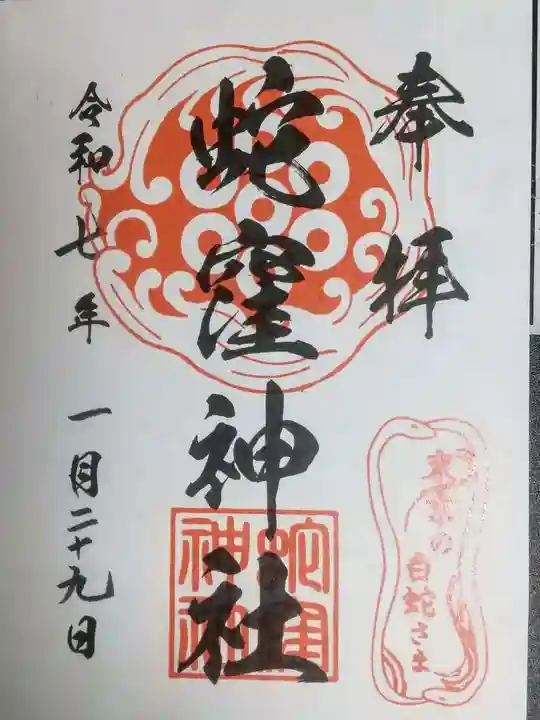 奉拝
蛇窪神社
令和七年 一月二十九日
蛇窪神社
東京の
白蛇さま